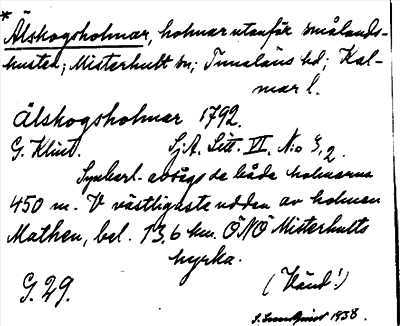 * Älskogsholmar, holmar utanför smålands-
kusten; Misterhult sn; Tunaläns hd; Kal-
mar l.
Älskogsholmar 1792.
G. Klint. Sj.A. Litt. VI. N:o 3,2.
Synbarl. avsågs de både holmarna
450 m. V västligaste udden av holmen
Mathen, bel. 13,6 km. ÖNÖ Misterhults
kyrka.
G. 29. (Vänd!)
1938.